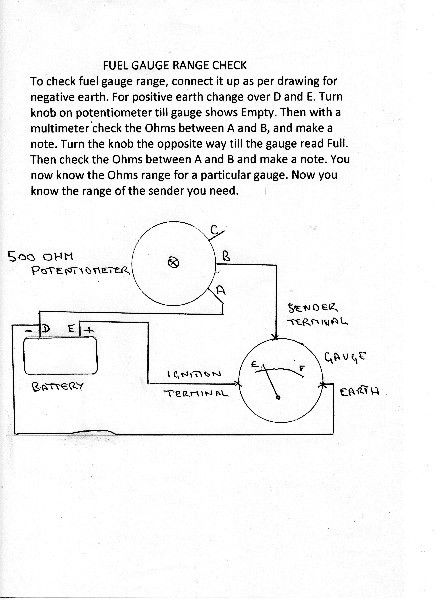 FUEL GAUGE RANGE CHECK
To check fuel gauge range, connect it up as per drawing for
negative earth. For positive earth change over D and E. Turn
knob on potentiometer till gauge shows Empty. Then with a
multimeter check the Ohms between A and B, and make a
note. Turn the knob the opposite way till the gauge read Full.
Then check the Ohms between A and B and make a note. You
now know the Ohms range for a particular gauge. Now you
know the range of the sender you need.
C
500 OHM
POTENTIOMETER
B
A
SENDER
TERMINAL
- D E +
GAUGE
E F
BATTERY
IGNITION
TERMINAL
EARTH